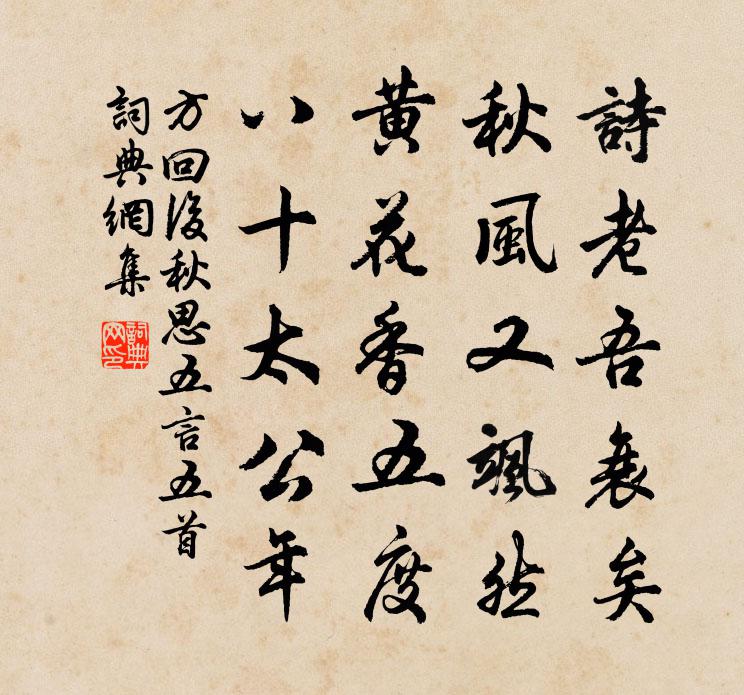 詩老吾衰矣
秋風又颯然
黄花香五度
八十太公年
方回後秋思五言五首
詞典網集
詞典網印